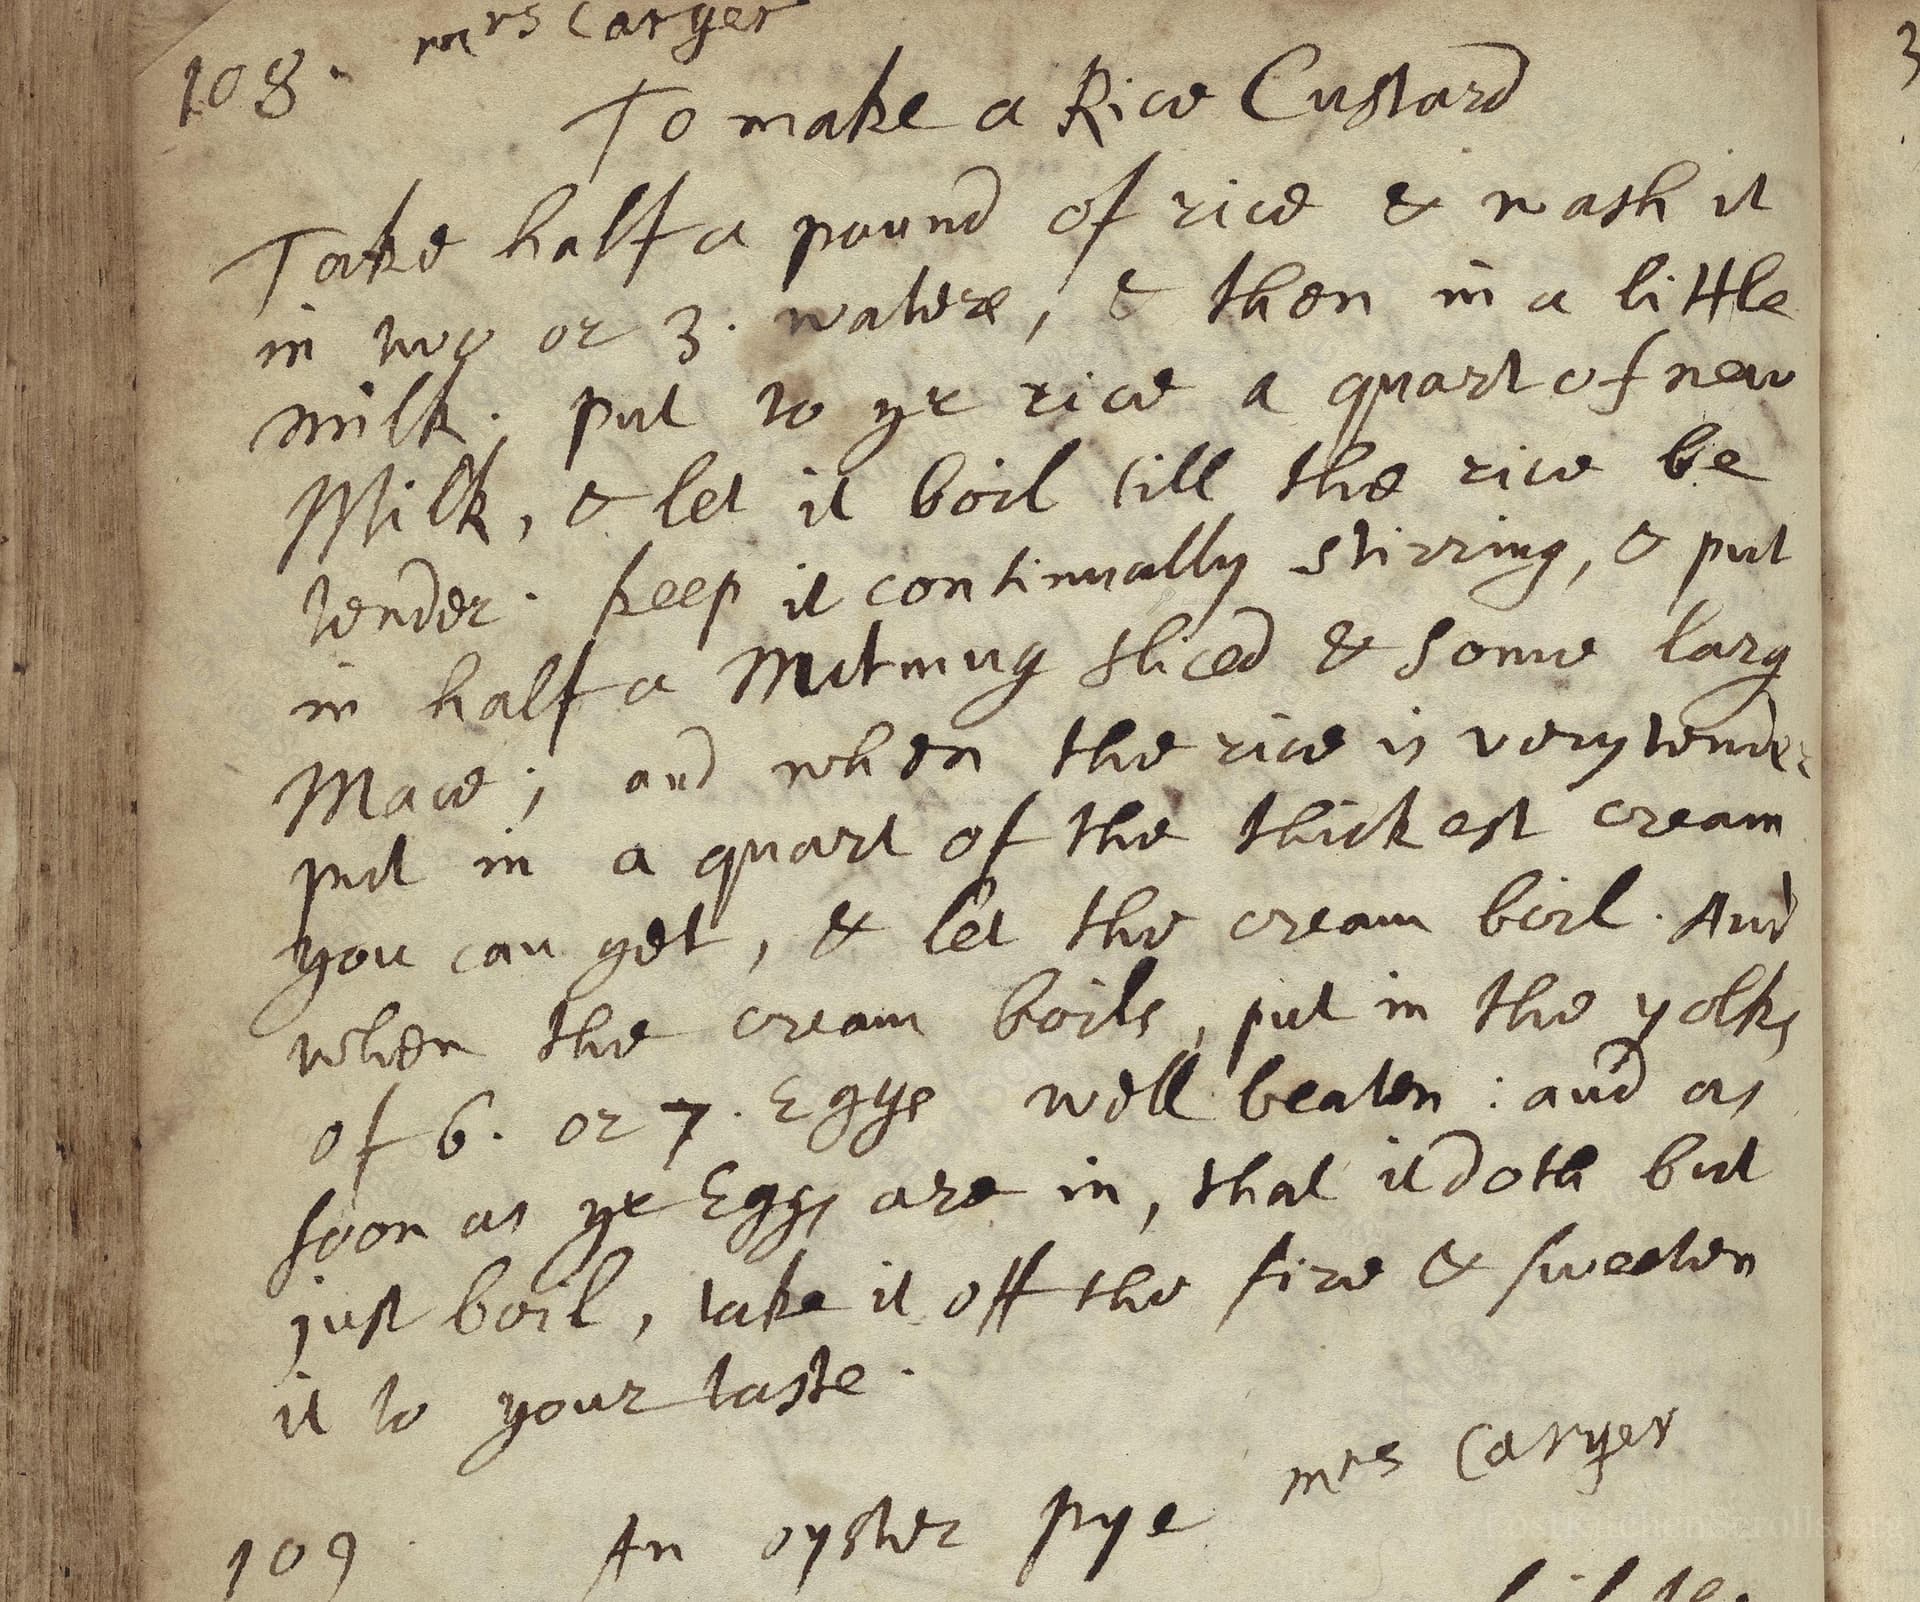 108. mrs Caryer
To make a Rice Custard
Take half a pound of rice & wash it
in two or 3. waters, & then in a little
milk; put to ye rice a quart of new
Milk, & let it boil till the rice be
tender. keep it continually stirring, & put
in half a Nutmug sliced & some larg
Mace; and when the rice is very tender
put in a quart of the thickest cream
you can get, & let the cream boil. And
when the cream boils, put in the yolks
of 6. or 7. Eggs well beaten: and as
soon as ye Eggs are in, that it doth but
just boil, take it off the fire & sweeten
it to your taste.
mrs Caryer
109 An oyster pye
3